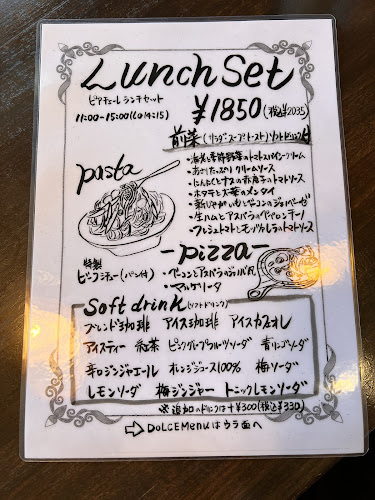 Lunch Set
ピアチェーレランチセット
11:00-15:00(L.o 14:15)
¥1850(税込¥2035)
前菜(サラダ・スープ・トースト)ソフトドリンク付
pasta
・海老と季節野菜のトマトクリーム
・あさりたっぷりクリームソース
・にんにくとナスの赤唐子のトマトソース
・ホタテと大葉のメンタイ
・新じゃがいもとベーコンのジェノベーゼ
・生ハムとアスパラのペペロンチーノ
・フレッシュトマトとモッツァレラのトマトソース
-pizza-
・ベーコンとアスパラのジェノバ風
・マルゲリータ
特製
ビーフシチュー(パン付)
Soft drink(ソフトドリンク)
ブレンド珈琲 アイス珈琲 アイスカフェオレ
アイスティー 紅茶 ピンクグレープフルーツソーダ 青リンゴソーダ
辛口ジンジャエール オレンジジュース100% 梅ソーダ
レモンソーダ 梅ジンジャー トニックレモンソーダ
※追加のドリンクは+¥300(税込¥330)
⇨ DOLCE Menuはウラ面へ